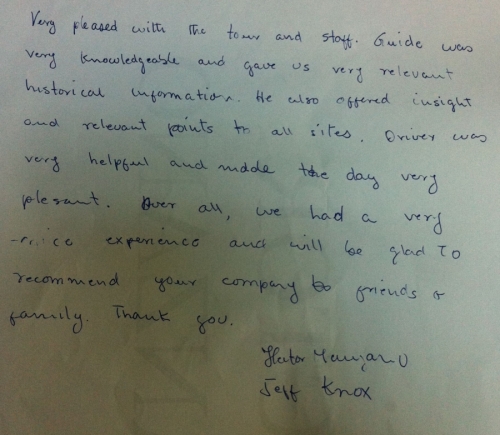 Very pleased with the tour and staff. Guide was
very knowledgeable and gave us very relevant
historical information. He also offered insight
and relevant points to all sites. Driver was
very helpful and made the day very
plesant. Over all, we had a very
nice experience and will be glad to
recommend your company to friends &
family. Thank you.
Jeff Knox